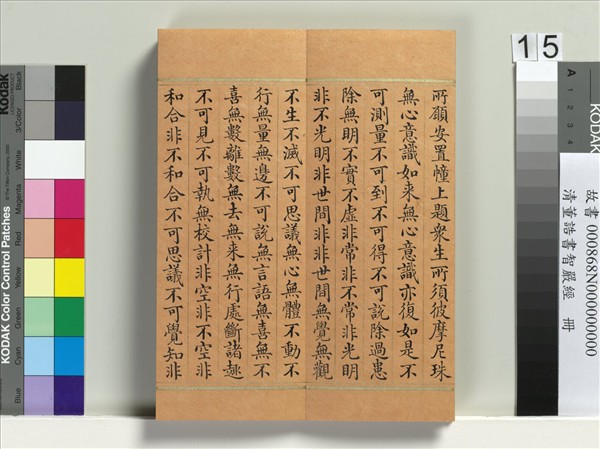 所願安置幢上題衆生所須彼摩尼珠
無心意識如来無心意識亦復如是不
可測量不可到不可得不可説除過患
除無明不實不虛非常非不常非光明
非不光明非世間非非世間無覺無觀
不生不滅不可思議無心無體不動不
行無量無邊不可說無言語無喜無不
喜無數離數無去無来無行處斷諸趣
不可見不可執無校計非空非不空非
和合非不和合不可思議不可覺知非
15
故書 000868N000000000
清董誥書智嚴經 冊
A 1 2 3 4
KODAK
Kodak
KODAK Color Control Patches
Blue Cyan Green Yellow Red Magenta White 3/Color Black